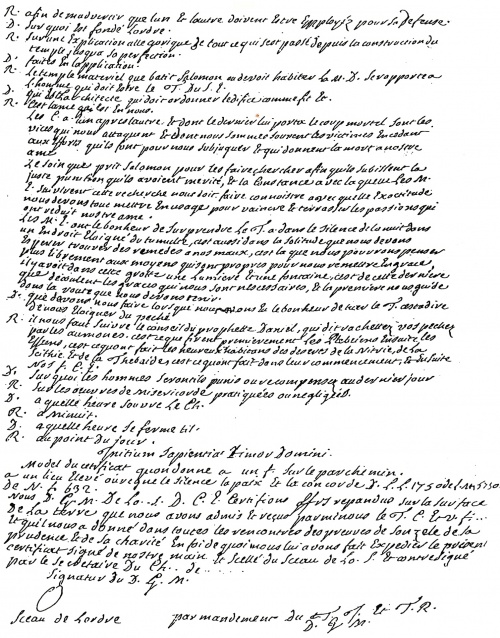 R. afin de m'advertir que lun & lautre doivent Estre Employéz pour sa defense.
D. Sur quoi Est fondé Lordre.
R. Sur une Explication allegorique de tout ce qui s'est passé depuis la construction du
temple jusqua sa perfection.
D. faites En lapplication.
R. Le temple materiel que batit Salomon ou devoit habiter La M. D. Se rapporte a
L'homme qui doit Estre le T. Du S. E.
D. Qui Est larchitecte qui doit ordonner ledifice comme fit &.
R. C'est lame qui Est En nous.
Les C. a lun apres lautre, & dont le dernier lui porta le coup mortel Sont les
vices qui nous attaquent & dont nous Sommes souvent les victimes En cedant
aux Efforts quils font pour nous Subjuguer & qui donnent la mort a nostre
ame.
Le soin que prit Salomon pour les faire chercher afin quils subissent la
juste punition quils avoient merité, & la Constance avec la quelle Les M.
E. Suivirent cette recherche nous doit faire connoistre avec quelle Exactitude
nous devons tout mettre En usage pour vaincre & terrasser les passions qui
ont reduit nostre ame.
Les M. E. ont le bonheur de Surprendre Le T. a dans le Silence de la nuit dans
un Endroit Eloigné du tumulte, c'est aussi dans la Solitude que nous devons
Esperer trouver des remedes a nos maux, c'est la que nous pouvons penser
plus librement aux moyens qui sont propres pour nous remettre En grace,
il y avoit dans cette grotte une Lumiere & une fontaine, c'est de cette derniere
que decoulent les graces qui nous sont necessaires, & la premiere nous guide
dans la route que nous devons tenir.
D. que devons nous faire lorsque nous avons Eu le bonheur de tuer le T. cest a dire
de nous Eloigner du peché.
R. il nous faut suivre le conseil du prophette Daniel, qui dit rachetez vos pechez
par les aumones. c'est ce que firent premierement les Plebeiens Ensuite les
Esseens, c'est ce quont fait les heureux habitans des deserts de la Nitrie, de La
Scithie & de la Thebaide, c'est ce quont fait dans leur commencement, & du suite
Nos f. C. E.
D. Sur quoi les hommes Seront ils punis ou recompensez au dernier jour
R. Sur les œuvres de misericorde pratiquées ou negligées.
D. a quelle heure souvre Le Ch.
R. a minuit.
D. a quelle heure Se ferme til.
R. au point du jour.
Initium Sapientia Timor Domini.
Model du certificat quon donne a un f. Sur le parchemin.
a un lieu Elevé ou regne le silence la paix & la concorde D. L. L. 1750 de l. M. 5750
De N. f. 632.
Nous D. G. M. De La. S. D. C. E. Certifions a tous f. f. repandus sur la surface
De La terre que nous avons admis & reçus parmi nous le T. C. & v. f...
& quil nous a donné dans touttes les rencontres des preuves de Son zele de la
prudence & de sa charité En foi de quoi nous lui avons fait Expedier le present
certificat signé de nostre main & Scellé du Sceau de La. S. & contresigné
par le Secretaire Du Ch... de.......
Signatur du D. G. M.
Sceau de Lordre par mandement du T. T. Et T. R.
D. G. M.